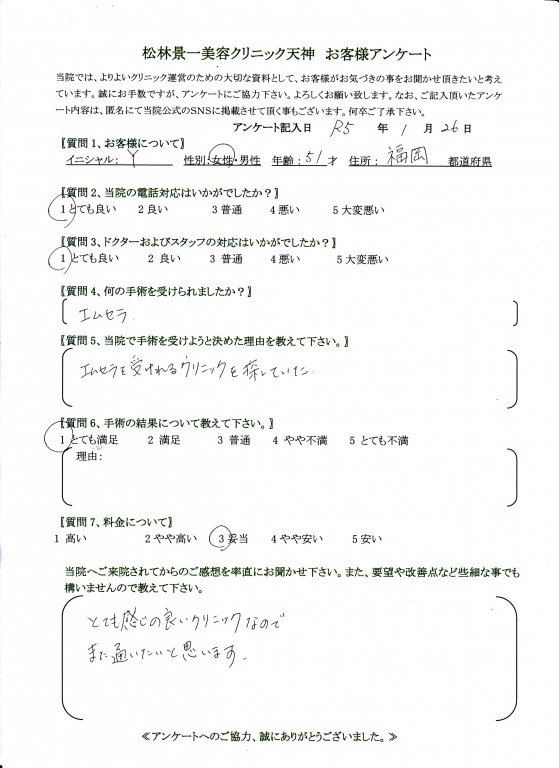 松林景一美容クリニック天神　お客様アンケート
当院では、よりよいクリニック運営のための大切な資料として、お客様がお気づきの事をお聞かせ頂きたいと考え
ています。誠にお手数ですが、アンケートにご協力下さい。よろしくお願い致します。なお、ご記入頂いたアンケ
ート内容は、匿名にて当院公式のSNSに掲載させて頂く事もございます。何卒ご了承下さい。
アンケート記入日　R5　年　1　月　26日
〖質問1、お客様について〗
イニシャル：　Y　性別：女性・男性　年齢：51才　住所：　福岡　都道府県
〖質問2、当院の電話対応はいかがでしたか？〗
1とても良い　2 良い　3 普通　4 悪い　5 大変悪い
〖質問3、ドクターおよびスタッフの対応はいかがでしたか？〗
1とても良い　2 良い　3 普通　4 悪い　5 大変悪い
〖質問4、何の手術を受けられましたか？〗
エムセラ
〖質問5、当院で手術を受けようと決めた理由を教えて下さい。〗
エムセラを受けれるクリニックを探していた
〖質問6、手術の結果について教えて下さい。〗
1とても満足　2 満足　3 普通　4 やや不満　5 とても不満
理由：
〖質問7、料金について〗
1 高い　2 やや高い　3 妥当　4 やや安い　5 安い
当院へご来院されてからのご感想を率直にお聞かせ下さい。また、要望や改善点など些細な事でも
構いませんので教えて下さい。
とても感じの良いクリニックなので
また通いたいと思います。
≪アンケートへのご協力、誠にありがとうございました。≫